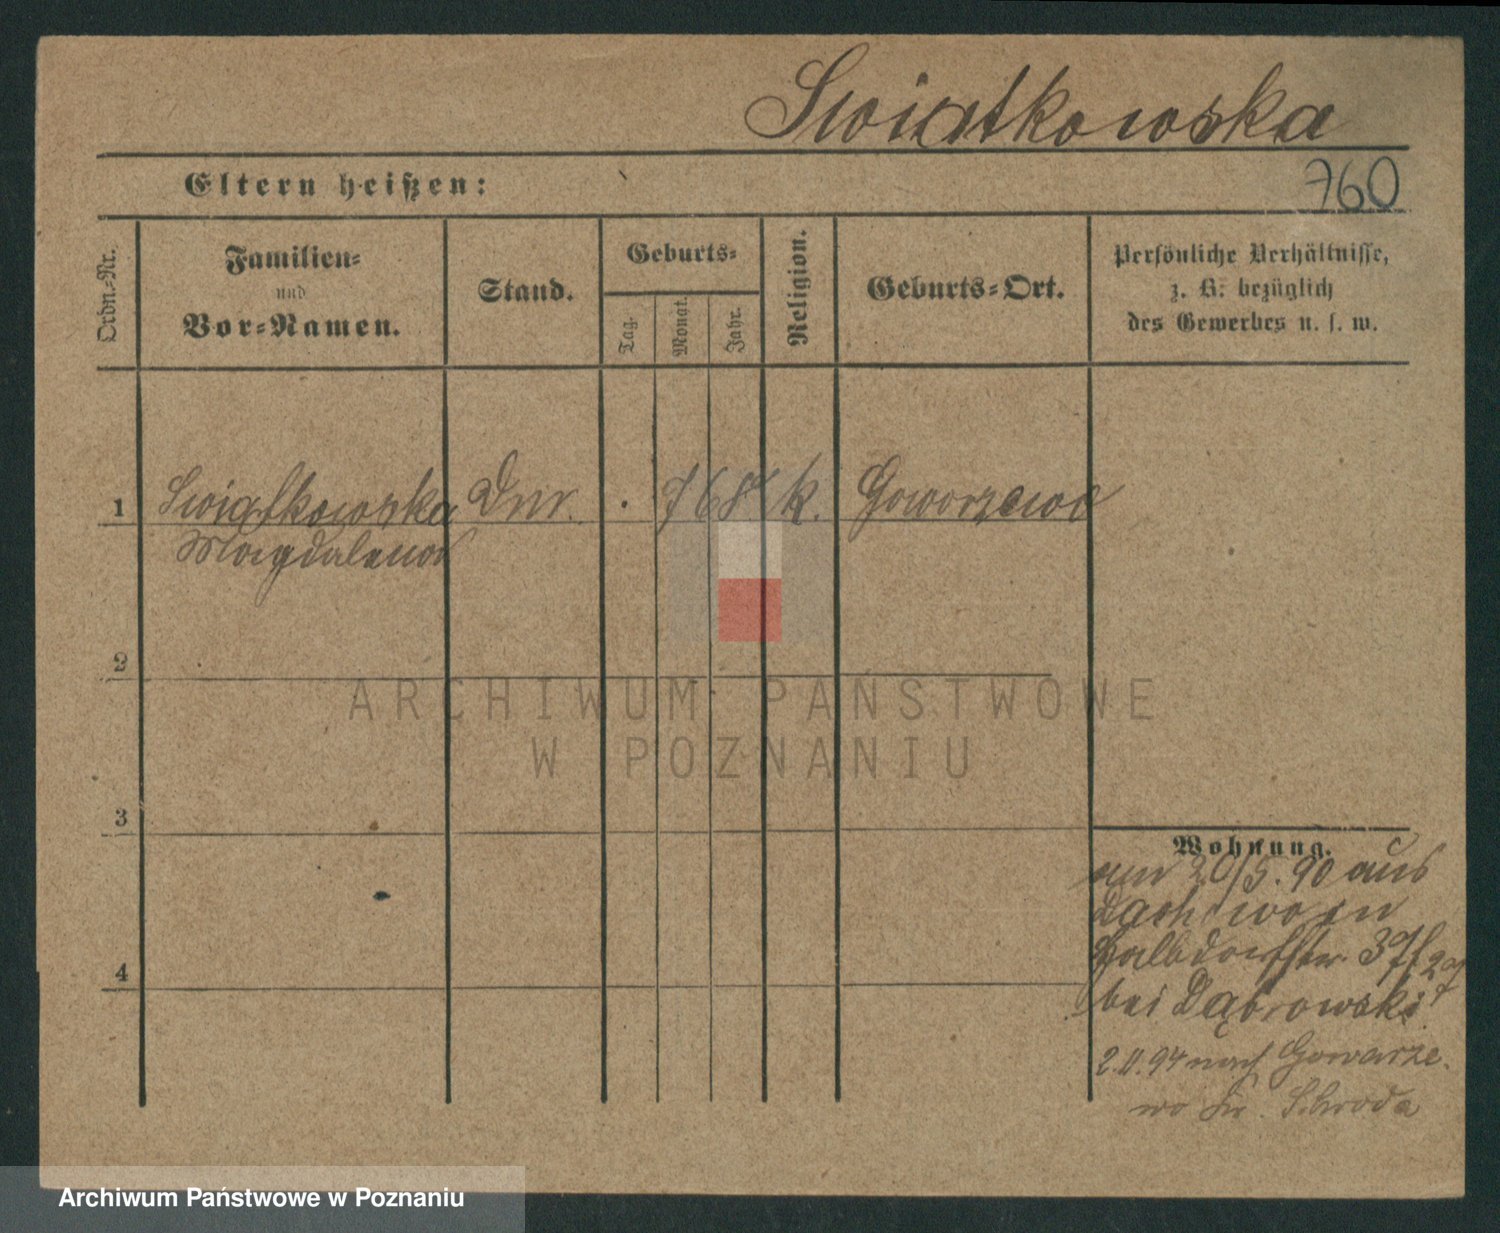 Swiątkowska
Eltern heißen:
760
Ordn.-Nr.
Familien-
und
Vor-Namen.
Stand.
Geburts-
Tag.
Monat.
Jahr.
Religion.
Geburts-Ort.
Persönliche Verhältnisse,
z. B. bezüglich
des Gewerbes u. s. w.
1
Swiątkowska
Magdalena
7 68
k.
Goworzewo
2
3
4
Wohnung.
am 20/5. 90 aus
Halbdorfstr. 37
bei Dąbrowski
2.11.94 nach Gowarze-
wo Kr. Schroda
ARCHIWUM PAŃSTWOWE
W POZNANIU
Archiwum Państwowe w Poznaniu